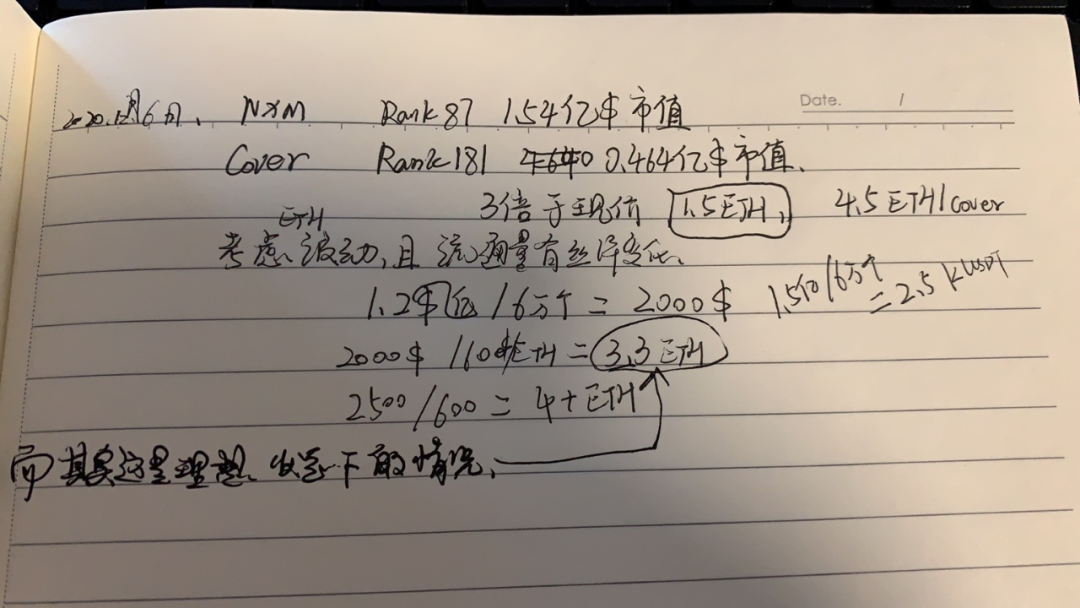 2020.12月6日. NXM Rank 87 1.54亿$ 市值
Date. /
Cover Rank 181 0.464亿$ 市值.
3倍于现价 1.5ETH, 4.5 ETH/cover
ETH
考虑波动,且流通量有些许变化.
1.2$亿 / 6万个 = 2000$ 1.5亿/6万个 = 2.5 k USDT
2000$ / 600$/ETH = 3.3 ETH
2500 / 600 = 4+ ETH
而其实这是理想状态下的情况.